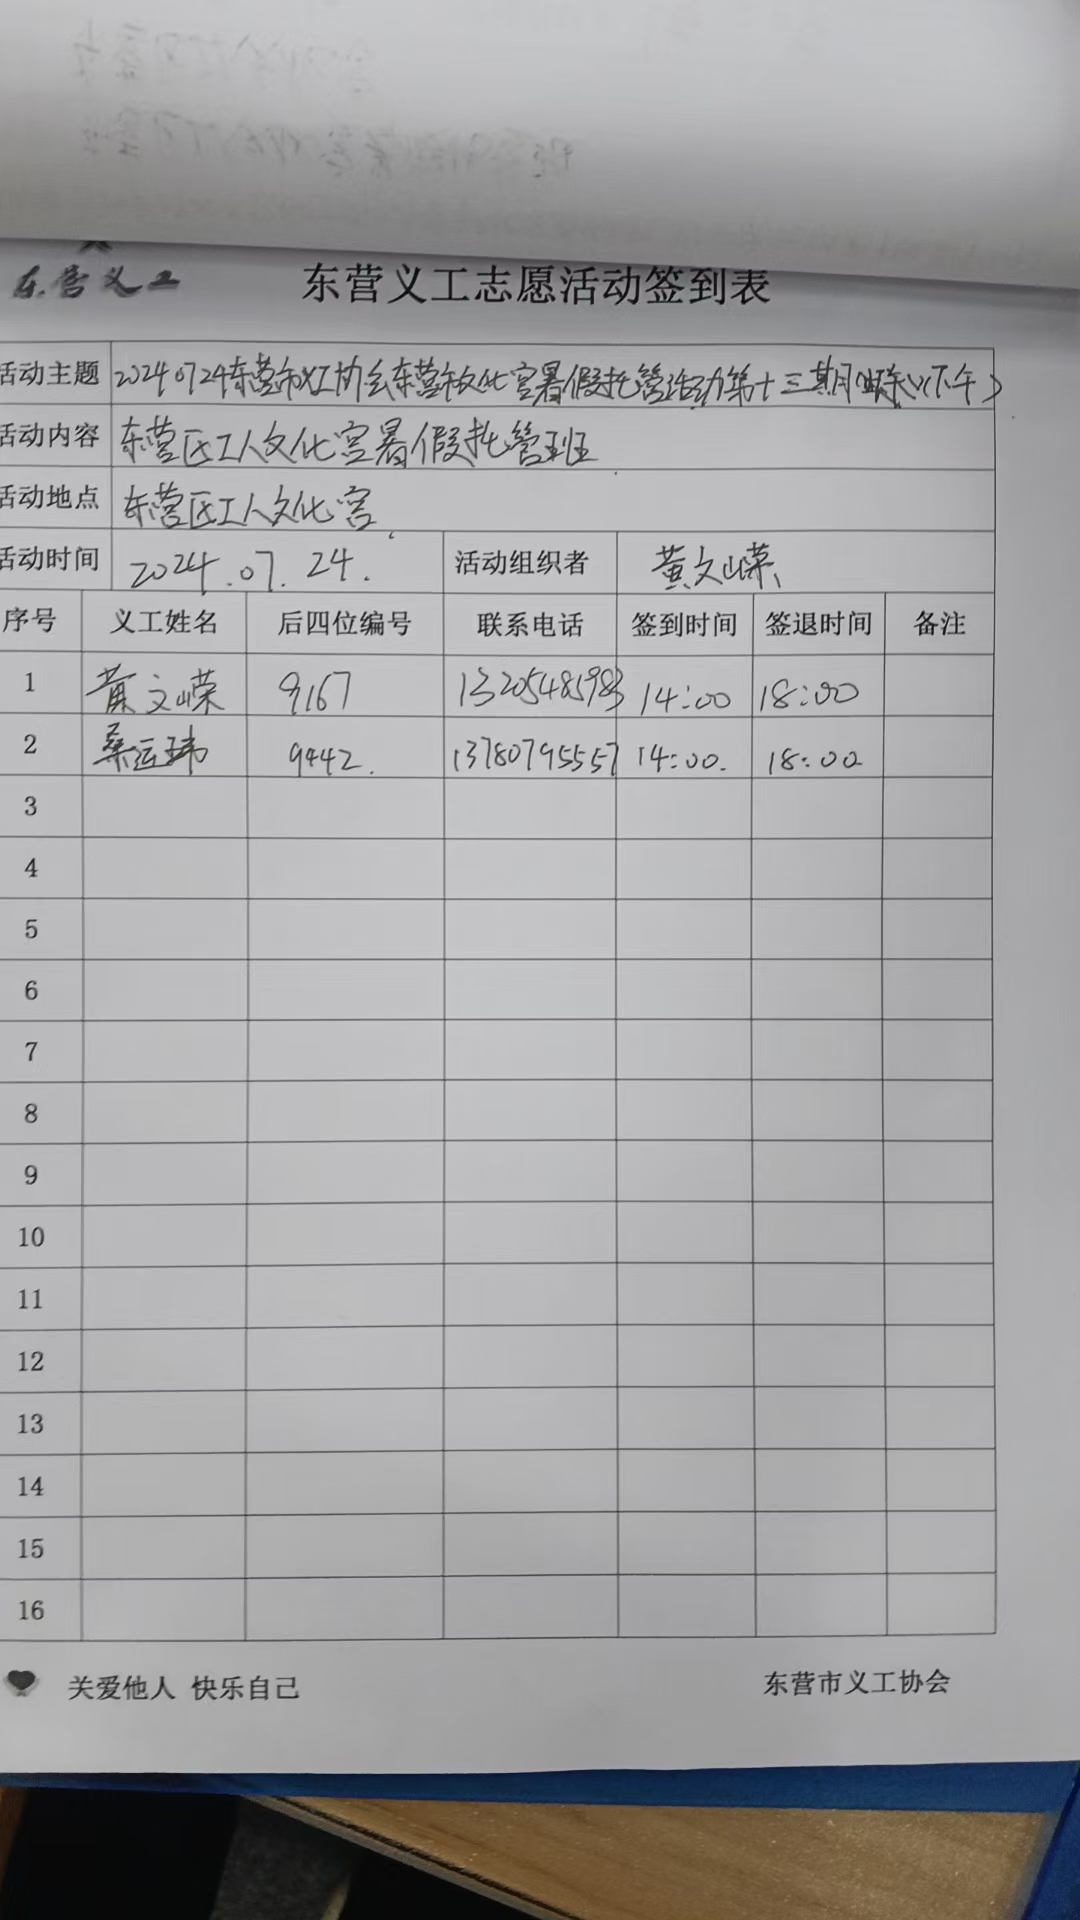 东营义工 东营义工志愿活动签到表
活动主题 20240724东营市义工协会东营市文化宫暑假托管活动第十三期(下午)
活动内容 东营区工人文化宫暑假托管班
活动地点 东营区工人文化宫
活动时间 2024.07.24. 活动组织者 黄文嵘
序号 义工姓名 后四位编号 联系电话 签到时间 签退时间 备注
1 黄文嵘 9167 13205485983 14:00 18:00
2 桑运玮 9442. 13780795557 14:00. 18:00
3
4
5
6
7
8
9
10
11
12
13
14
15
16
关爱他人 快乐自己 东营市义工协会